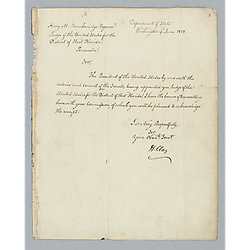 Department of State
Washington 9 June 1838
Henry M. Brackenridge Esquire
Judge of the United States for the
District of West Florida
Pensacola
Sir,
The President of the United States by and with the
advice and consent of the Senate having appointed you Judge of the
United States for the District of West Florida, I have the honor of transmitting
herewith your Commission of which you will be pleased to acknowledge
the receipt.
I am Very Respectfully
Sir
Your Obed. Servt.
H. Clay